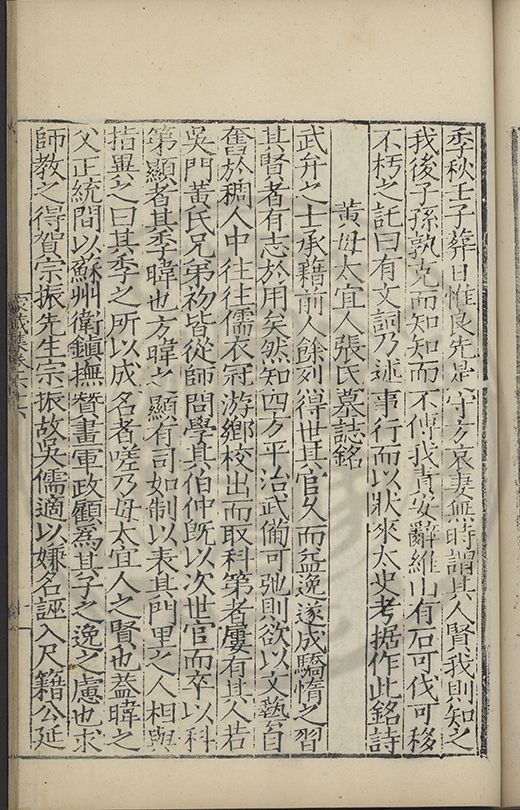 季秋壬子葬日惟良先是宇方哀妻無時謂其人賢我則知之
我後子孫孰克而知知而不傳我責安辭維山有石可伐可移
不朽之託曰有文詞乃述事行而以狀來太史考據作此銘詩
黃母太宜人張氏墓誌銘
武弁之士承藉前人餘列得世其官久而益逸遂成驕惰之習
其賢者有志於用矣然知四方平治武備可弛則欲以文藝自
奮於稠人中往往儒衣冠游鄉校出而取科第者屢有其人若
吳門黃氏兄弟初皆從師問學其伯仲旣以次世官而卒以科
第顯者其季暐也方暐之顯有司如制以表其門里之人相與
指異之曰其季之所以成名者嗟乃母太宜人之賢也蓋暐之
父正統間以蘇州衛鎮撫贊畫軍政顧爲其子之逸之慮也求
師教之得賀宗振先生宗振故吳儒適以嫌名誣入尺籍公延